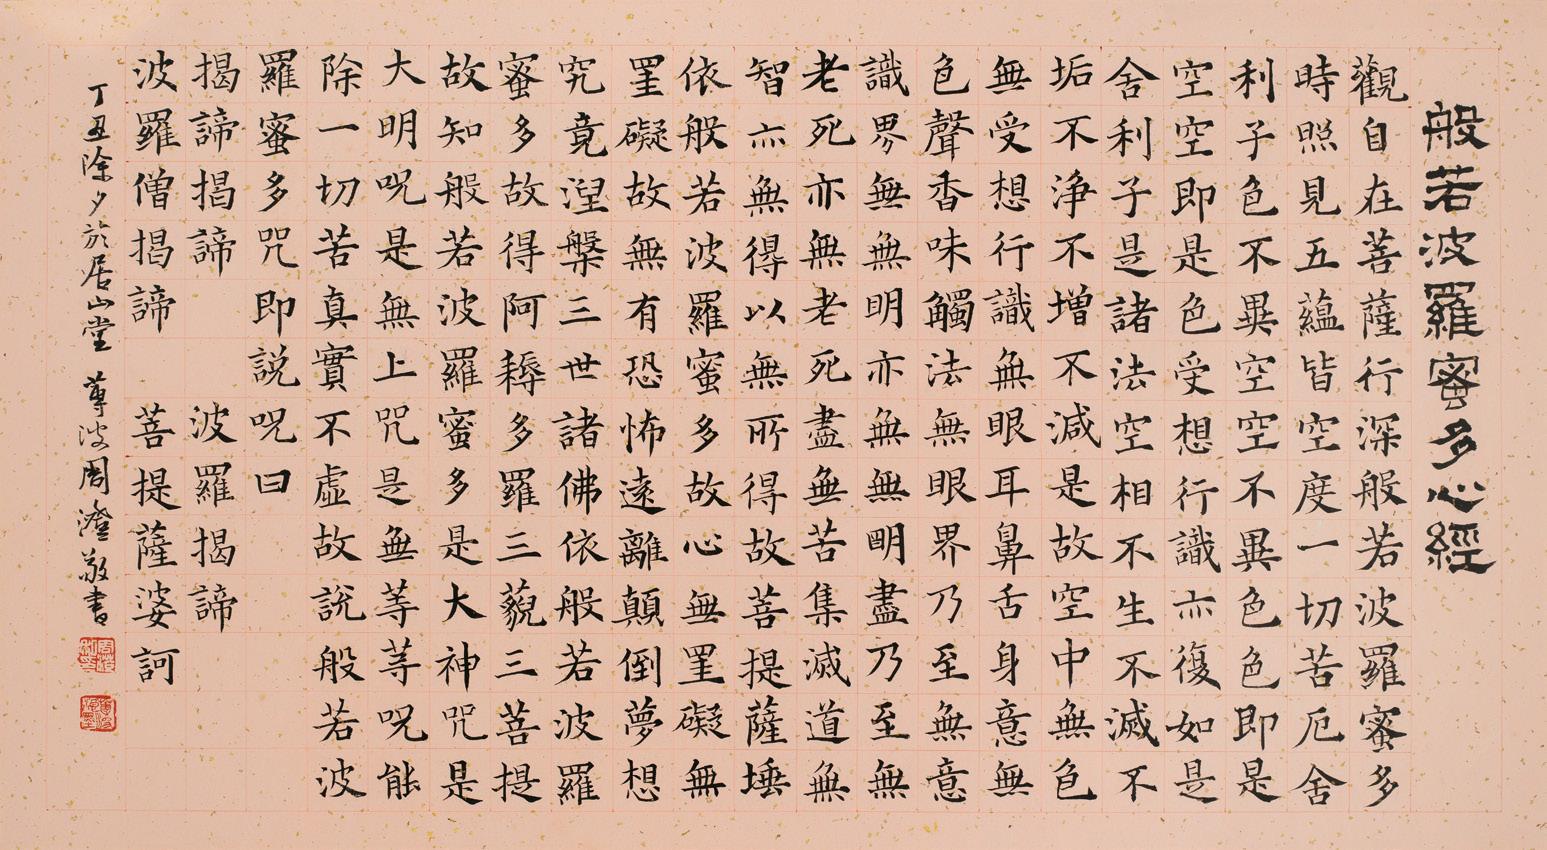 般若波羅蜜多心經
觀自在菩薩行深般若波羅蜜多
時照見五蘊皆空度一切苦厄舍
利子色不異空空不異色色即是
空空即是色受想行識亦復如是
舍利子是諸法空相不生不滅不
垢不淨不增不減是故空中無色
無受想行識無眼耳鼻舌身意無
色聲香味觸法無眼界乃至無意
識界無無明亦無無明盡乃至無
老死亦無老死盡無苦集滅道無
智亦無得以無所得故菩提薩埵
依般若波羅蜜多故心無罣礙無
罣礙故無有恐怖遠離顛倒夢想
究竟涅槃三世諸佛依般若波羅
蜜多故得阿耨多羅三藐三菩提
故知般若波羅蜜多是大神咒是
大明咒是無上咒是無等等咒能
除一切苦真實不虛故說般若波
羅蜜多咒即說咒曰
揭諦揭諦 波羅揭諦
波羅僧揭諦 菩提薩婆訶
丁丑除夕於居山堂 蓴波周澄敬書